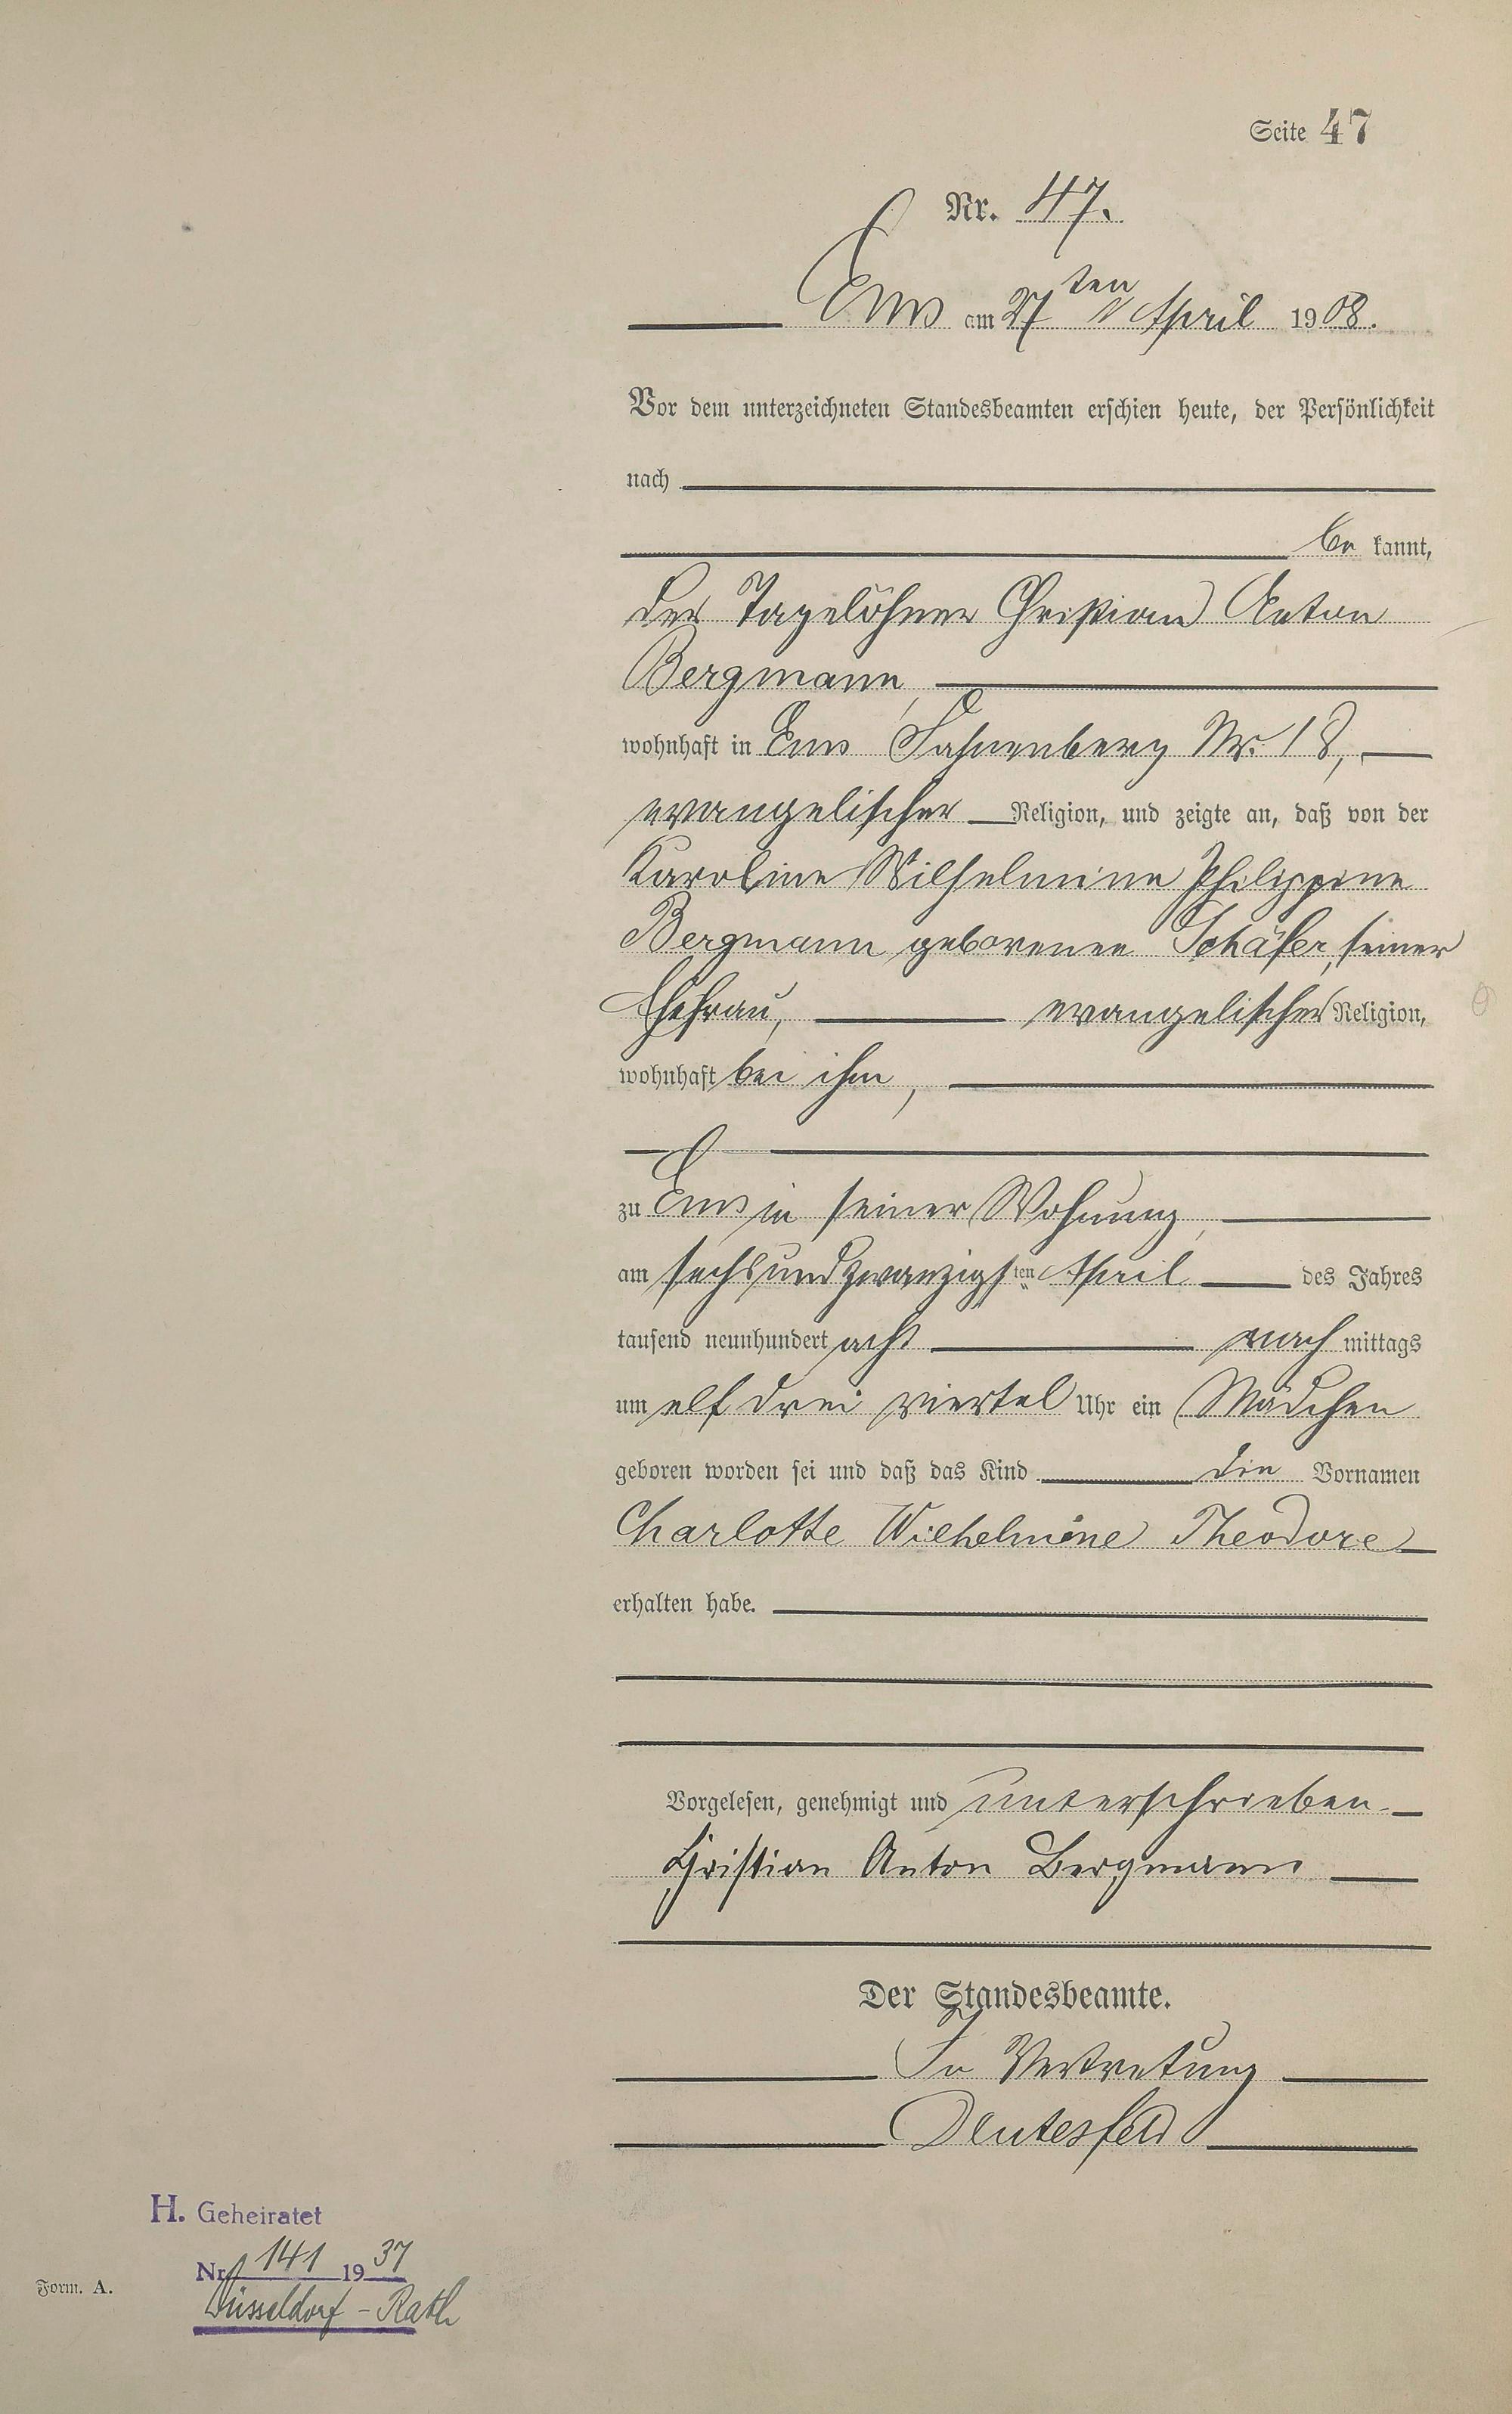 Seite 47
Nr. 47.
Ems am 27ten April 1908.
Vor dem unterzeichneten Standesbeamten erschien heute, der Persönlichkeit
nach
be kannt,
der Tagelöhner Christian Anton
Bergmann,
wohnhaft in Ems Fahnenberg Nr. 18,
evangelischer Religion, und zeigte an, daß von der
Karoline Wilhelmine Philippine
Bergmann geborenen Schäfer, seiner
Ehefrau, evangelischer Religion,
wohnhaft bei ihm,
zu Ems in seiner Wohnung,
am sechsundzwanzigsten April des Jahres
tausend neunhundert acht nach mittags
um elf drei viertel Uhr ein Mädchen
geboren worden sei und daß das Kind die Vornamen
Charlotte Wilhelmine Theodore
erhalten habe.
Vorgelesen, genehmigt und unterschrieben.
Christian Anton Bergmann
Der Standesbeamte.
In Vertretung
H. Geheiratet
Nr. 141 1937
Düsseldorf - Rath
Form. A.